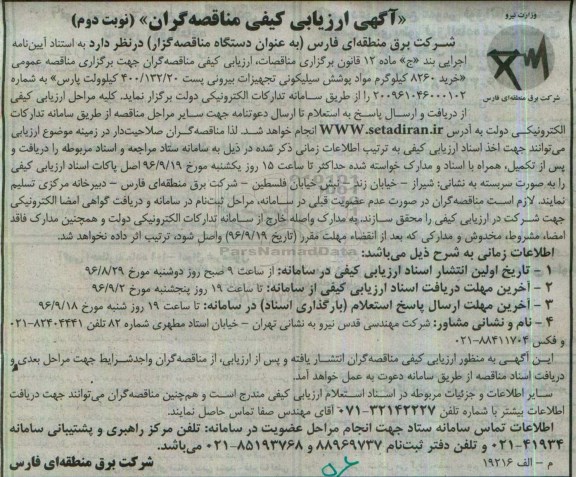 وزارت نیرو
«آگهی ارزیابی کیفی مناقصه‌گران» (نوبت دوم)
شرکت برق منطقه‌ای فارس (به عنوان دستگاه مناقصه‌گزار) درنظر دارد به استناد آیین‌نامه
اجرایی بند «ج» ماده ۱۲ قانون برگزاری مناقصات، ارزیابی کیفی مناقصه‌گران جهت برگزاری مناقصه عمومی
«خرید ۸۲۶۰ کیلوگرم مواد پوشش سیلیکونی تجهیزات بیرونی پست ۴۰۰/۱۳۲/۲۰ کیلوولت پارس» به شماره
۲۰۰۹۶۱۰۴۶۰۰۰۱۰۲ را از طریق سامانه تدارکات الکترونیکی دولت برگزار نماید. کلیه مراحل ارزیابی کیفی
شرکت برق منطقه‌ای فارس
از دریافت و ارسال پاسخ به استعلام تا ارسال دعوتنامه جهت سایر مراحل مناقصه از طریق سامانه تدارکات
الکترونیکی دولت به آدرس WWW.setadiran.ir انجام خواهد شد. لذا مناقصه‌گران صلاحیت‌دار در زمینه موضوع ارزیابی
می‌توانند جهت اخذ اسناد ارزیابی کیفی به ترتیب اطلاعات زمانی ذکر شده در ذیل به سامانه ستاد مراجعه و اسناد مربوطه را دریافت و
پس از تکمیل، همراه با اسناد و مدارک خواسته شده حداکثر تا ساعت ۱۵ روز یکشنبه مورخ ۹۶/۹/۱۹ اصل پاکات اسناد ارزیابی کیفی
را به صورت سربسته به نشانی: شیراز - خیابان زند - نبش خیابان فلسطین - شرکت برق منطقه‌ای فارس - دبیرخانه مرکزی تسلیم
نمایند. لازم است مناقصه‌گران در صورت عدم عضویت قبلی در سامانه، مراحل ثبت‌نام در سامانه و دریافت گواهی امضا الکترونیکی
جهت شرکت در ارزیابی کیفی را محقق سازند. به مدارک واصله خارج از سامانه تدارکات الکترونیکی دولت و همچنین مدارک فاقد
امضا، مشروط، مخدوش و مدارکی که بعد از انقضاء مهلت مقرر (تاریخ ۹۶/۹/۱۹) واصل شود، ترتیب اثر داده نخواهد شد.
اطلاعات زمانی به شرح ذیل می‌باشد:
ParsNamadData
۱ - تاریخ اولین انتشار اسناد ارزیابی کیفی در سامانه: از ساعت ۹ صبح روز دوشنبه مورخ ۹۶/۸/۲۹
۲ - آخرین مهلت دریافت اسناد ارزیابی کیفی از سامانه: تا ساعت ۱۹ روز پنجشنبه مورخ ۹۶/۹/۲
۳ - آخرین مهلت ارسال پاسخ استعلام (بارگذاری اسناد) در سامانه: تا ساعت ۱۹ روز شنبه مورخ ۹۶/۹/۱۸
۴ - نام و نشانی مشاور: شرکت مهندسی قدس نیرو به نشانی تهران - خیابان استاد مطهری شماره ۸۲ تلفن ۸۲۴۰۴۴۴۱-۰۲۱
و فکس ۸۸۴۱۱۷۰۴-۰۲۱
این آگهی به منظور ارزیابی کیفی مناقصه‌گران انتشار یافته و پس از ارزیابی، از مناقصه‌گران واجدشرایط جهت مراحل بعدی و
دریافت اسناد مناقصه از طریق سامانه دعوت به عمل خواهد آمد.
سایر اطلاعات و جزئیات مربوطه در اسناد استعلام ارزیابی کیفی مندرج است و هم‌چنین مناقصه‌گران می‌توانند جهت دریافت
اطلاعات بیشتر با شماره تلفن ۳۲۱۴۲۲۲۷-۰۷۱ آقای مهندس صفا تماس حاصل نمایند.
اطلاعات تماس سامانه ستاد جهت انجام مراحل عضویت در سامانه: تلفن مرکز راهبری و پشتیبانی سامانه
۴۱۹۳۴-۰۲۱ و تلفن دفتر ثبت‌نام ۸۸۹۶۹۷۳۷ و ۸۵۱۹۳۷۶۸-۰۲۱ می‌باشد.
م - الف ۱۹۲۱۶
شرکت برق منطقه‌ای فارس